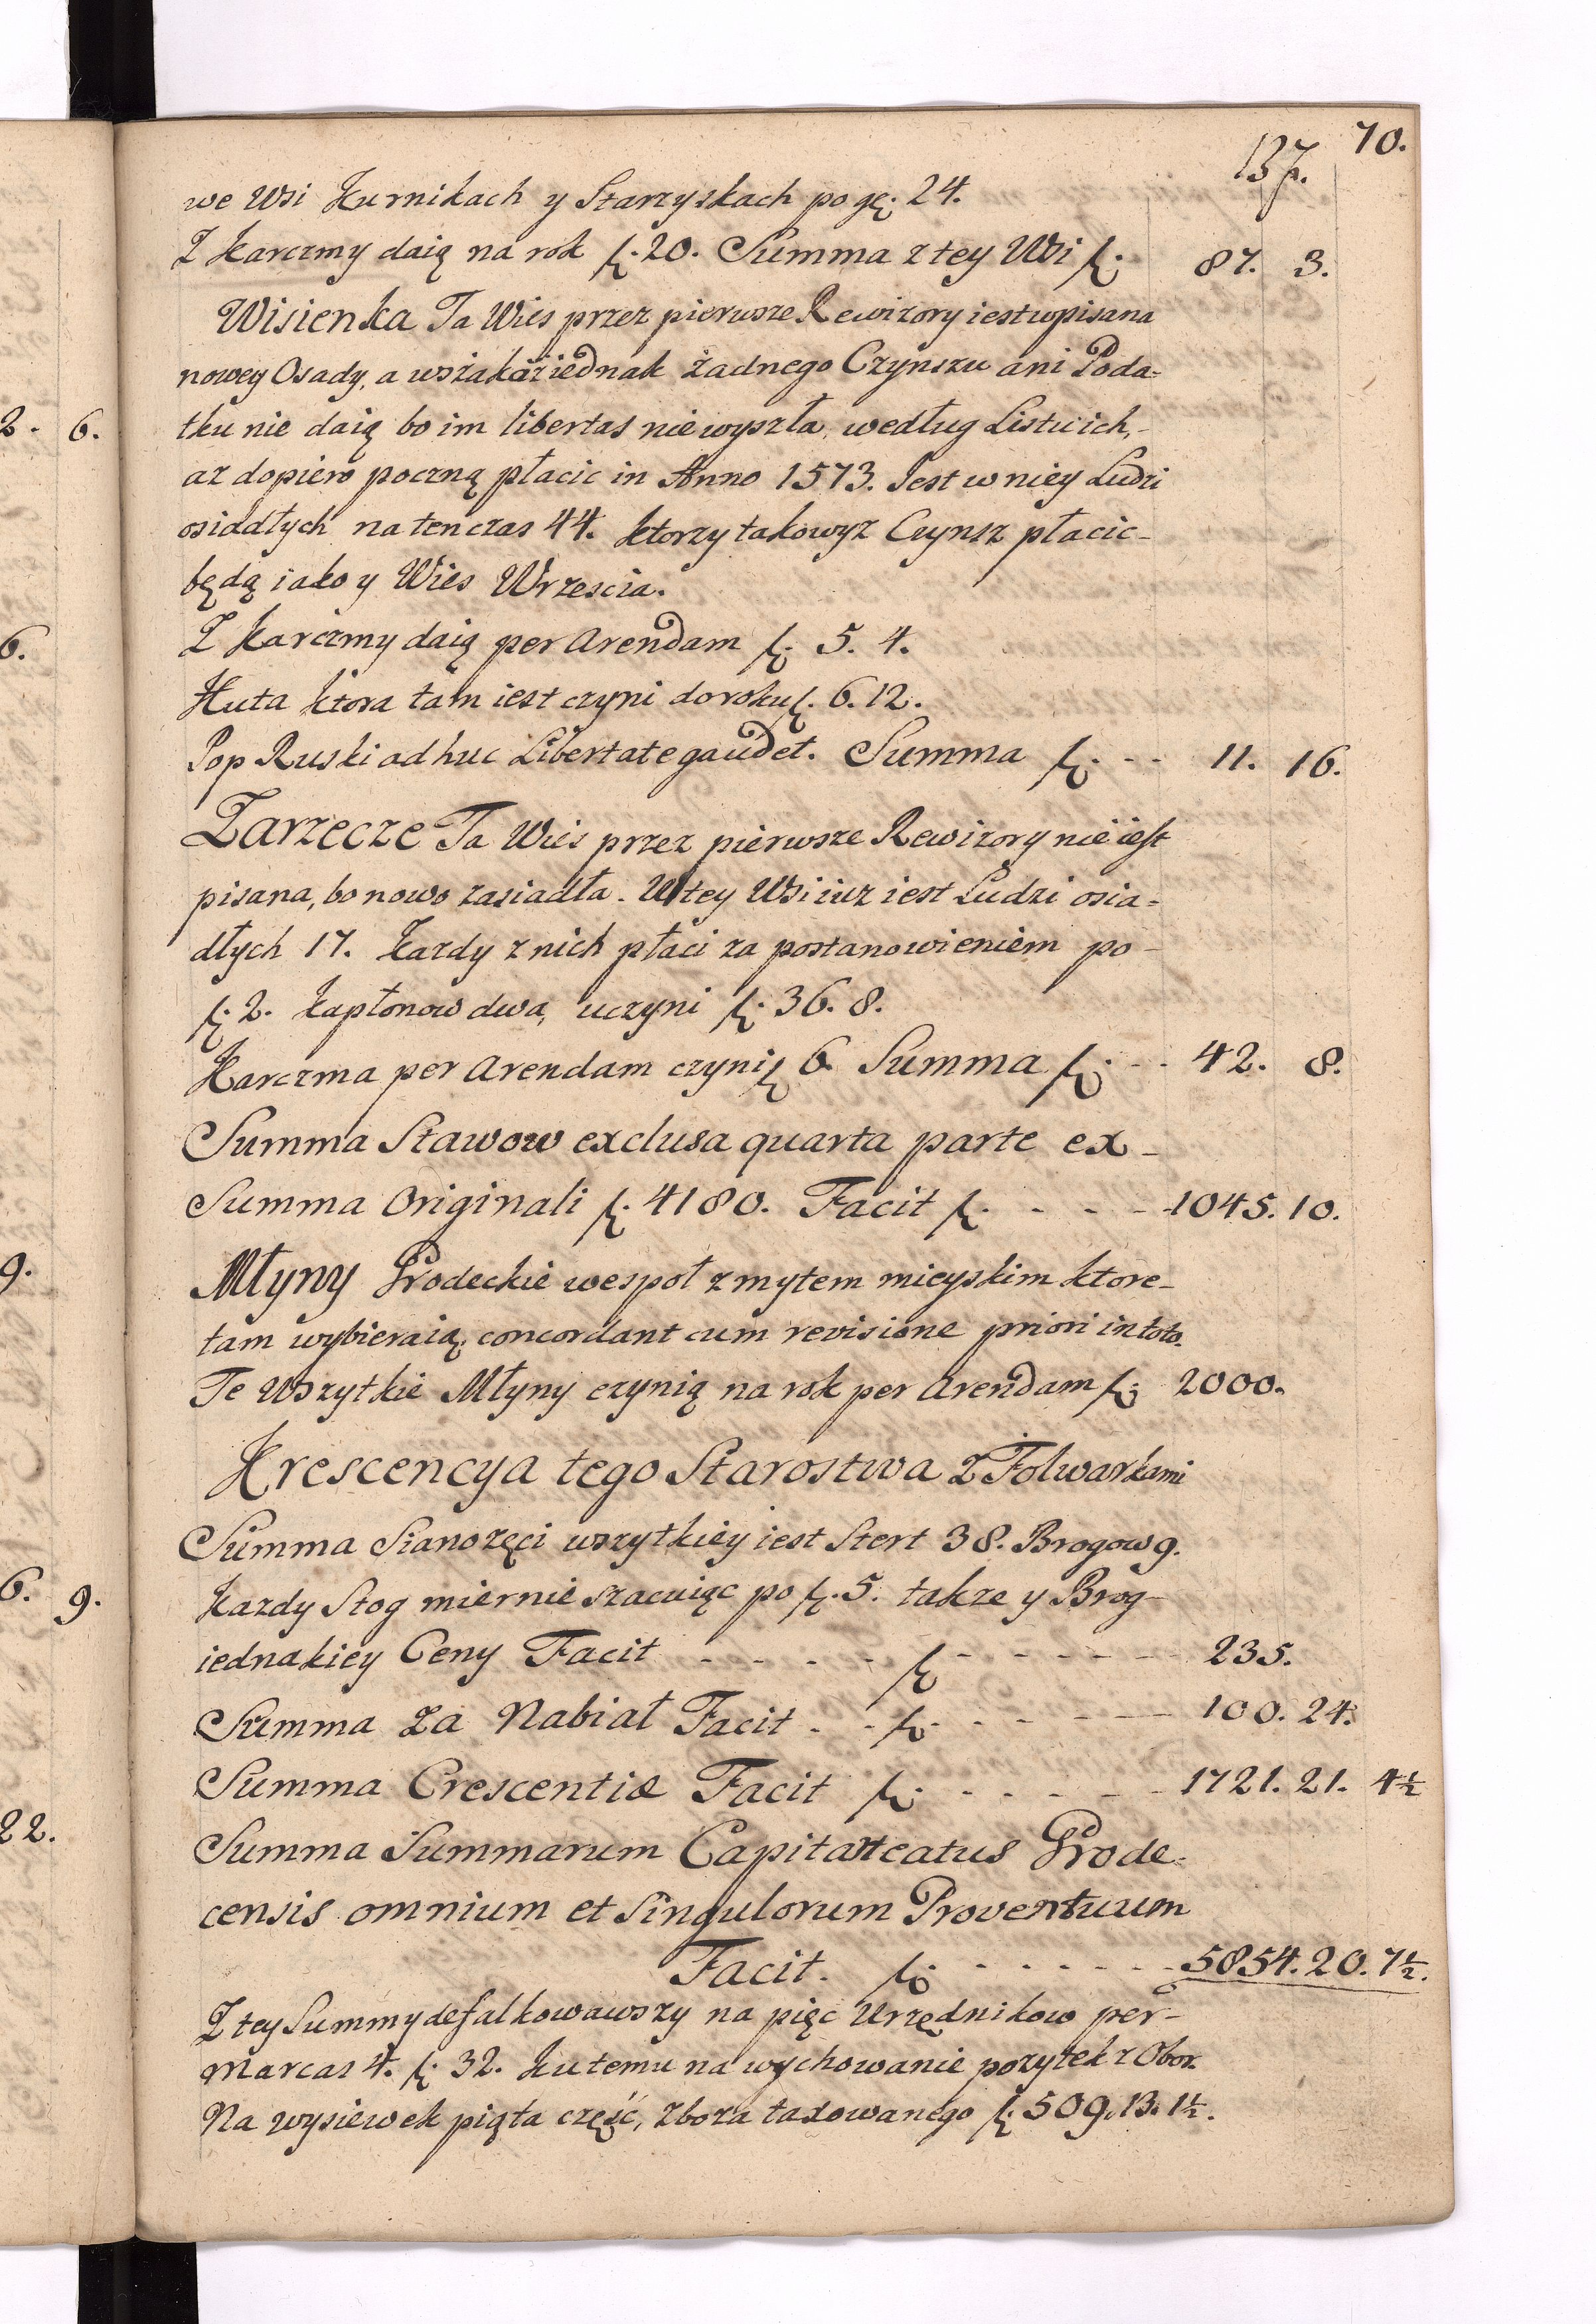 70.
137.
we Wsi Kurnikach y Starzyskach po gę. 24.
Z Karczmy daią na rok f. 20. Summa z tey Wsi f. 87. 3.
Wisienka Ta Wies przez pierwsze Rewizory iest wpisana
nowey Osady, a wszakoż iednak żadnego Czynszu ani Poda=
tku nie daią bo im libertas nie wyszła, według Listu ich,
az dopiero poczną płacic in Anno 1573. Jest w niey Ludzi
osiadłych na ten czas 44. ktorzy takowyz Czynsz płacic
będą iako y Wies Wrzescia.
Z Karczmy daią per Arendam f. 5. 4.
Huta ktora tam iest czyni do roku f. 6. 12.
Pop Ruski adhuc Libertate gaudet. Summa f. 11. 16.
Zarzecze Ta Wies przez pierwsze Rewizory nie iest
pisana, bo nowo zasiadła. W tey Wsi iuz iest Ludzi osia=
dłych 17. Kazdy z nich płaci za postanowieniem po
f. 2. kapłonow dwa, uczyni f. 36. 8.
Karczma per Arendam czyni f. 6. Summa f. 42. 8.
Summa Stawow exclusa quarta parte ex
Summa Originali f. 4180. Facit f. 1045. 10.
Młyny Grodeckie wespoł z mytem mieyskim ktore
tam wybieraią, concordant cum revisione priori in toto.
Te Wszytkie Młyny czynią na rok per Arendam f. 2000.
Krescencya tego Starostwa z Folwarkami
Summa Sianozęci wszytkiey iest Stert 38. Brogow 9.
Kazdy Stog miernie szacuiąc po f. 5. takze y Brog
iednakiey Ceny Facit f. 235.
Summa za Nabiał Facit f. 100. 24.
Summa Crescentiæ Facit f. 1721. 21. 4½
Summa Summarum Capitaneatus Grode=
censis omnium et Singulorum Proventuum
Facit. f. 5854. 20. 7½.
Z tey Summy defalkowawszy na pięc Urzędnikow per
Marcas 4. f. 32. Ku temu na wychowanie pozytek z Obor.
Na wysiewek piąta część, zboza taxowanego f. 509. 13. 1½.
2. 6.
6.
9.
6. 9.
22.